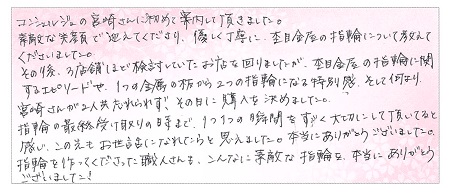 コンシェルジュの宮崎さんに初めて案内して頂きました。
素敵な笑顔で迎えてくださり、優しく丁寧に、杢目金屋の指輪について教えて
くださいました。
その後、3店舗ほど検討していたお店を回りましたが、杢目金屋の指輪に関
するエピソードや、1つの金属の板から2つの指輪になる特別感、そして何より、
宮崎さんが2人共忘れられず、その日に購入を決めました。
指輪の最終受け取りの日まで、1つ1つの瞬間をすごく大切にして頂いてると
感じ、この先もお世話になれたらと思えました。本当にありがとうございました。
指輪を作ってくださった職人さんも、こんなに素敵な指輪を、本当にありがとう
ございました！